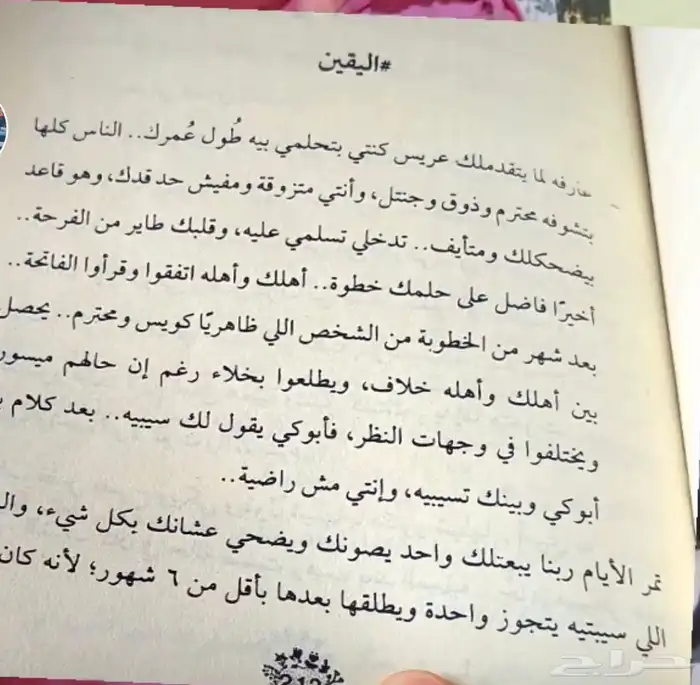 #اليقين
- عارفه لما يتقدملك عريس كنتي بتحلمي بيه طُول عُمرك.. الناس كلها
بتشوفه محترم وذوق وجنتل، وأنتي متزوقة ومفيش حد قدك، وهو قاعد
بيضحكلك ومتأيف.. تدخلي تسلمي عليه، وقلبك طاير من الفرحة..
أخيرًا فاضل على حلمك خطوة.. أهلك وأهله اتفقوا وقرأوا الفاتحة..
بعد شهر من الخطوبة من الشخص اللي ظاهريًا كويس ومحترم.. يحصل
بين أهلك وأهله خلاف، ويطلعوا بخلاء رغم إن حالهم ميسور
ويختلفوا في وجهات النظر، فأبوكي يقول لك سيبيه.. بعد كلام
أبوكي وبينك تسيبيه، وإنتي مش راضية..
تمر الأيام ربنا يبعتلك واحد يصونك ويضحي عشانك بكل شيء،
اللي سيبتيه يتجوز واحدة ويطلقها بعدها بأقل من ٦ شهور؛ لأنه كان
حراج